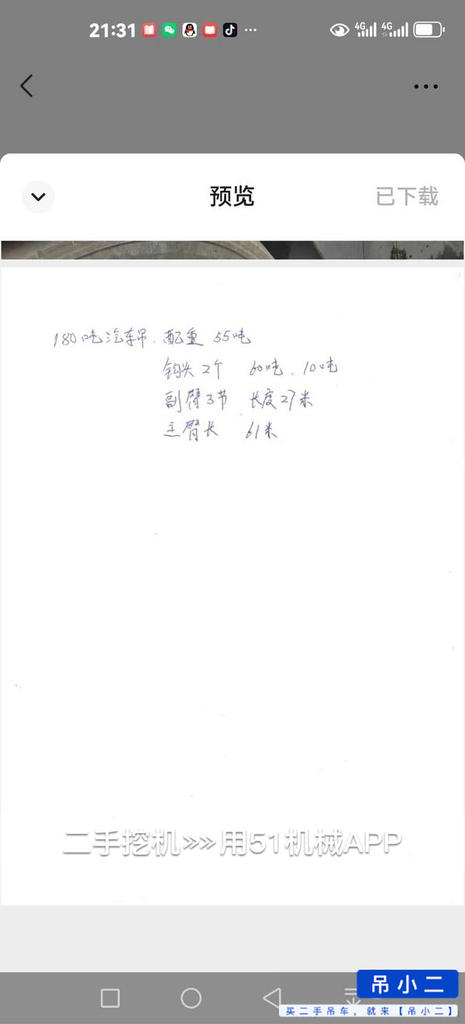 21:31
4G 4G
预览
已下载
180吨汽车吊. 配重 55吨
钩头 2个 60吨、10吨
副臂3节 长度27米
主臂长 61米
二手挖机>>>用51机械APP
吊小二
买二手吊车，就来【吊小二】